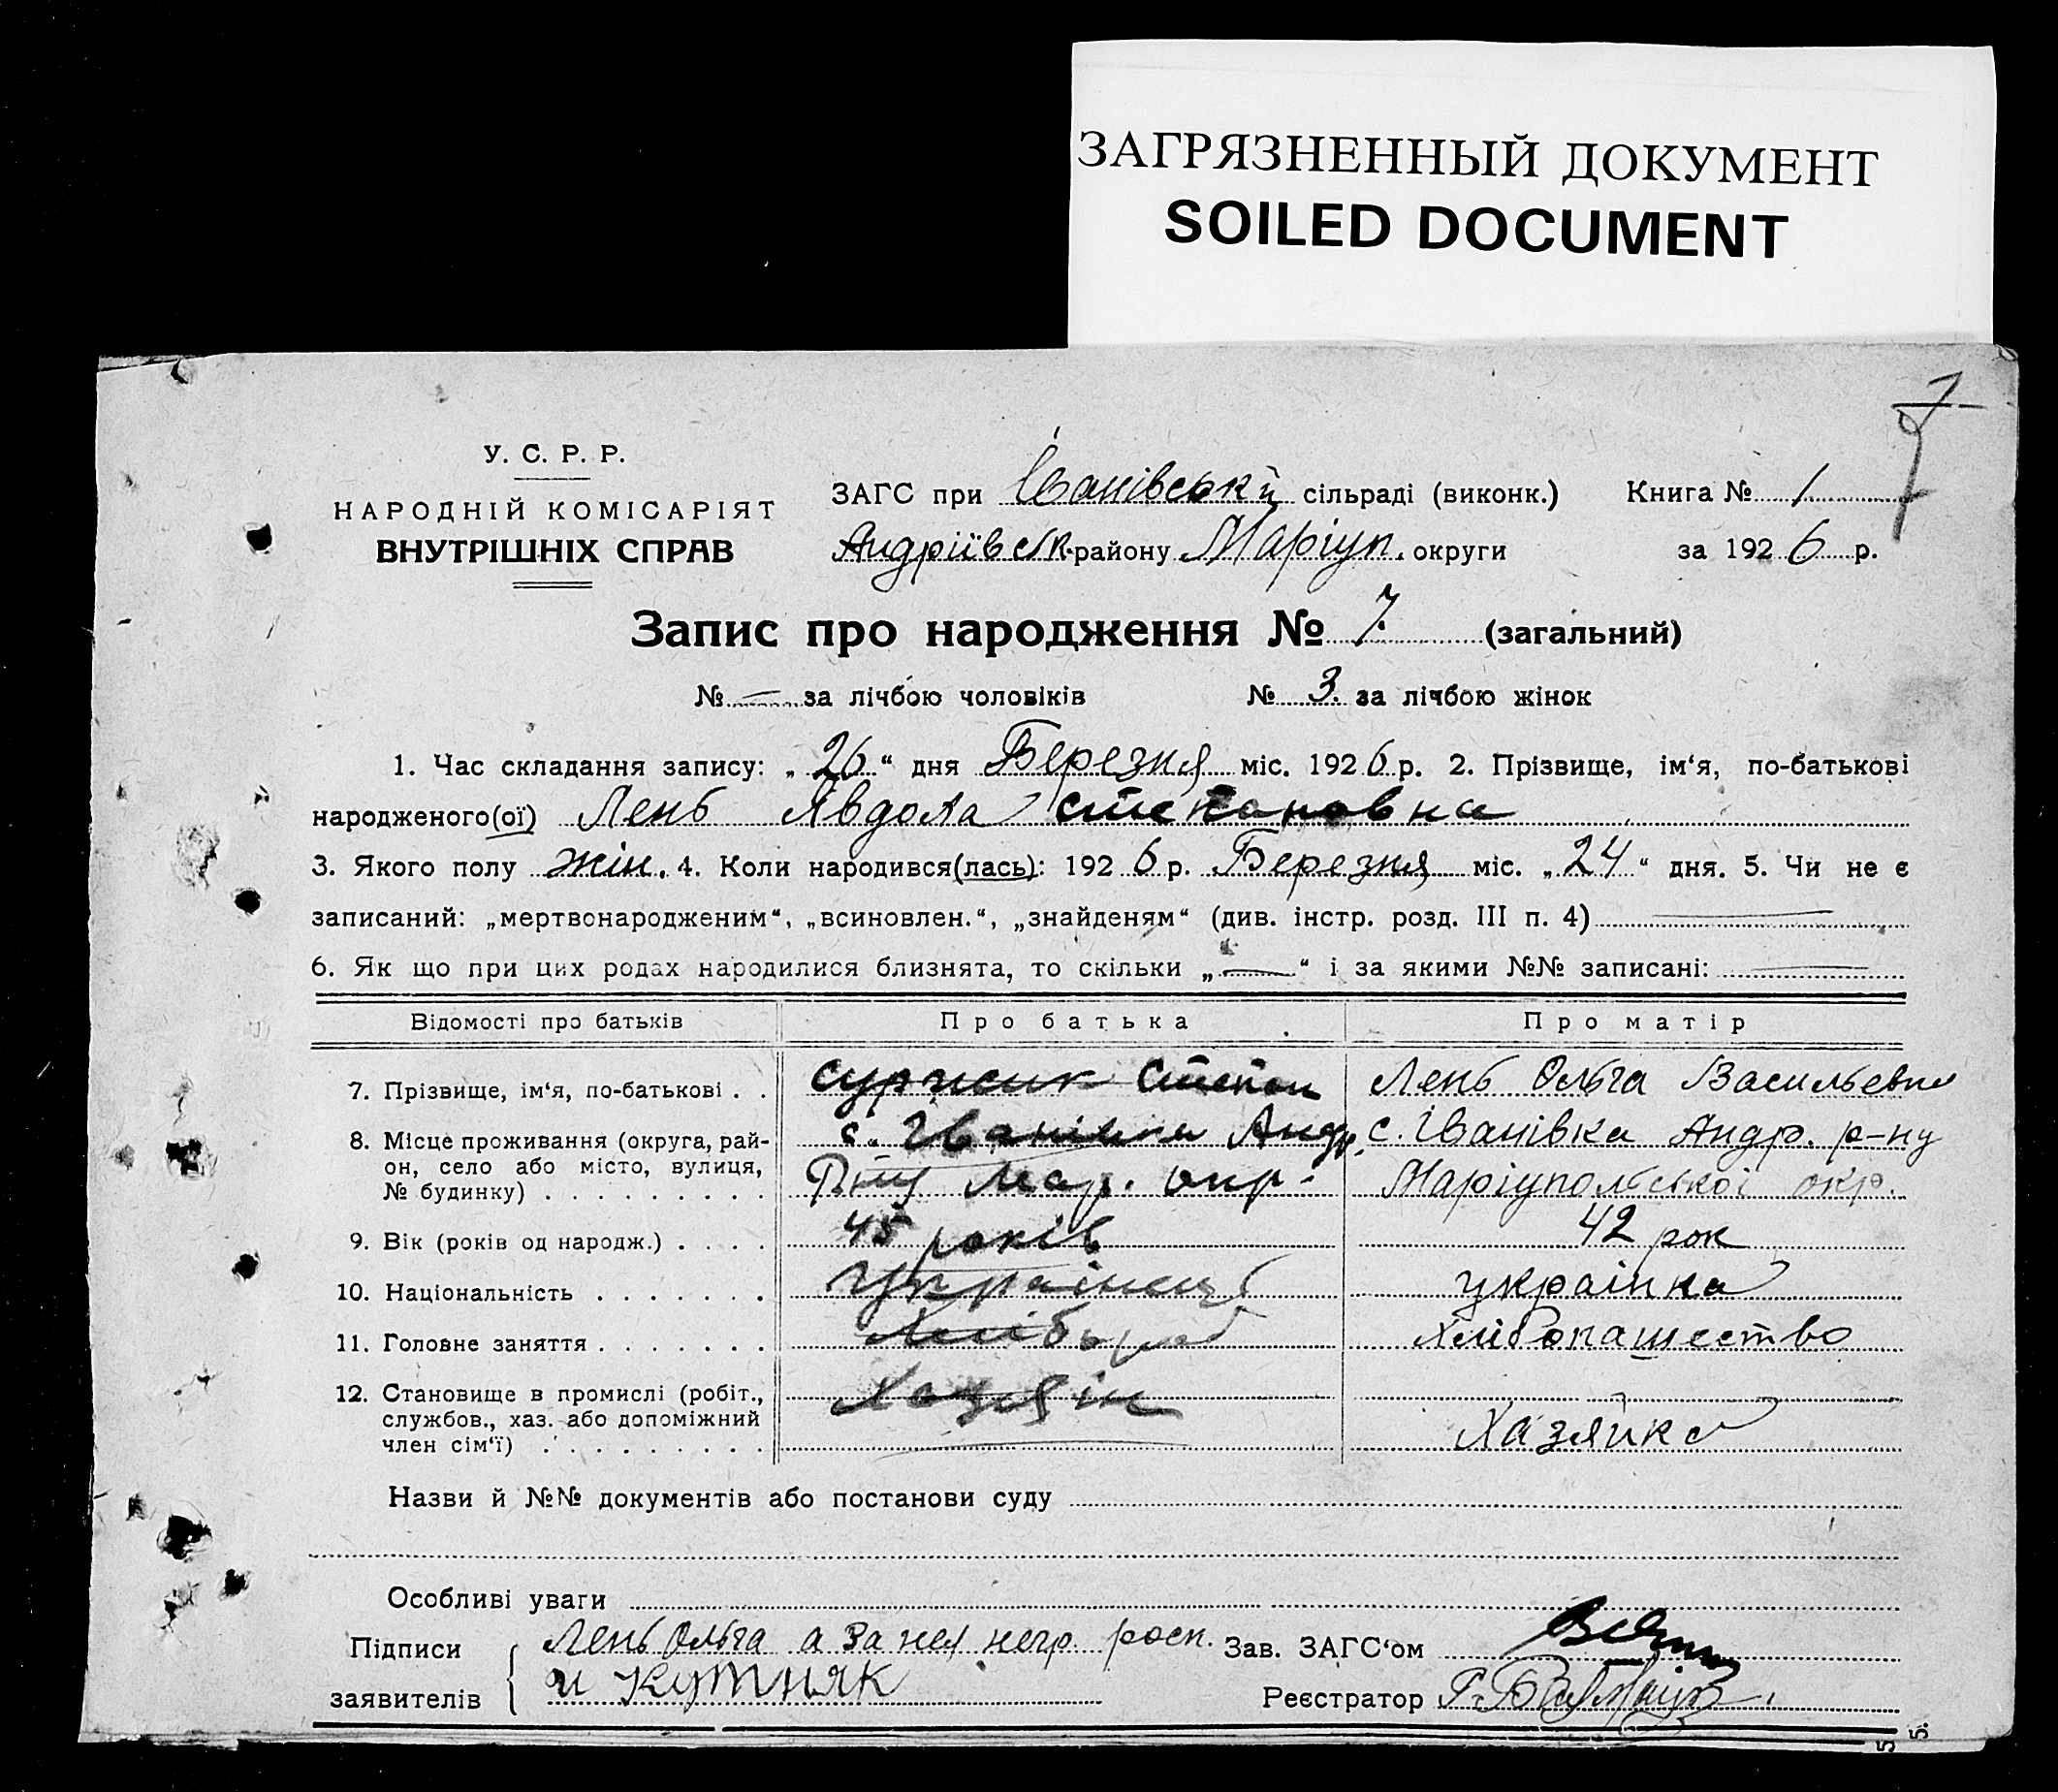 ЗАГРЯЗНЕННЫЙ ДОКУМЕНТ
SOILED DOCUMENT
7
У. С. Р. Р.
НАРОДНІЙ КОМІСАРІЯТ
ВНУТРІШНІХ СПРАВ
ЗАГС при Іванівській сільраді (виконк.) Книга № 1
Андріївськ. району Маріуп. округи за 1926 р.
Запис про народження № 7. (загальний)
№ — за лічбою чоловіків № 3. за лічбою жінок
1. Час складання запису: „26“ дня Березня міс. 1926 р. 2. Прізвище, ім‘я, по-батькові
народженого(ої) Лень Явдоха Степановна
3. Якого полу жін. 4. Коли народився(лась): 1926 р. Березня міс. „24“ дня. 5. Чи не є
записаний: „мертвонародженим“, „всиновлен.“, „знайденям“ (див. інстр. розд. III п. 4) —
6. Як що при цих родах народилися близнята, то скільки „—“ і за якими №№ записані: —
Відомості про батьків Про батька Про матір
7. Прізвище, ім‘я, по-батькові . . Суржик Степан Лень Ольга Васильевна
8. Місце проживання (округа, рай- с. Іванівка Андр. с. Іванівка Андр. р-ну
он, село або місто, вулиця,
№ будинку) . . . . . . . . . Р-ну Мар. окр. Маріупольської окр.
9. Вік (років од народж.) . . . . 45 років 42 рок
10. Національність . . . . . . . Українець українка
11. Головне заняття . . . . . . . Хлібороб Хлібопашество
12. Становище в промислі (робіт., Хазяїн
службов., хаз. або допоміжний
член сім‘ї) . . . . . . . . . Хазяйка
Назви й №№ документів або постанови суду
Особливі уваги
Підписи Лень Ольга а за нея негр. росп. Зав. ЗАГС‘ом
заявителів и Кутняк Реєстратор